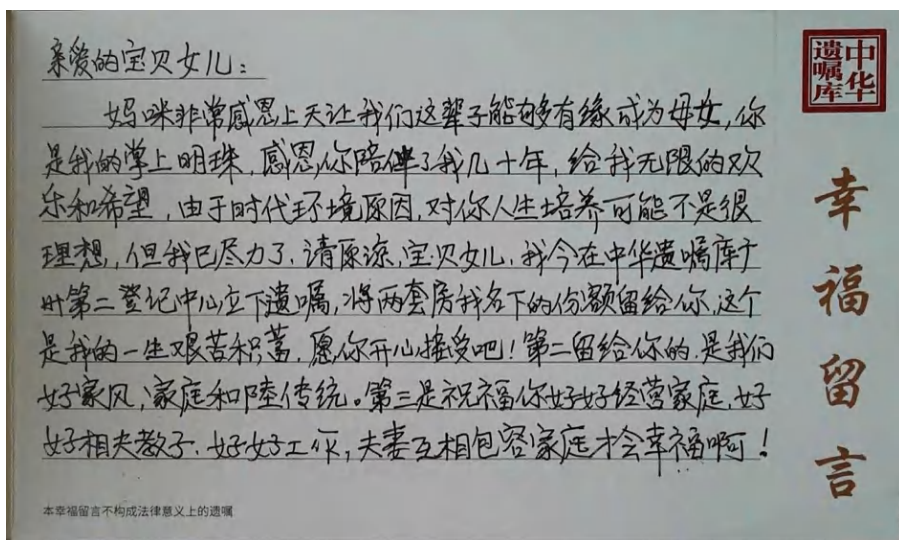 亲爱的宝贝女儿：
妈咪非常感恩上天让我们这辈子能够有缘成为母女，你
是我的掌上明珠，感恩你陪伴了我几十年，给我无限的欢
乐和希望，由于时代环境原因，对你人生培养可能不是很
理想，但我已尽力了，请原谅，宝贝女儿，我今在中华遗嘱库广
州第二登记中心立下遗嘱，将两套房我名下的份额留给你，这个
是我的一生艰苦积蓄，愿你开心接受吧！第二留给你的，是我们
好家风，家庭和陸传统。第三是祝福你好好经营家庭，好
好相夫教子，好好工作，夫妻互相包容家庭才会幸福啊！
本幸福留言不构成法律意义上的遗嘱
中华
遗嘱库
幸福留言